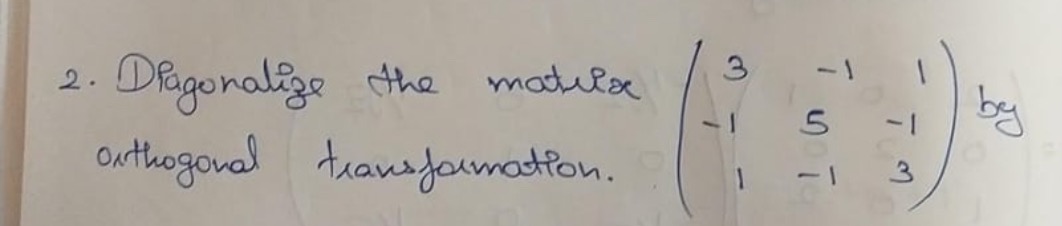 2. Diagonalize the matrix $\begin{pmatrix} 3 & -1 & 1 \\ -1 & 5 & -1 \\ 1 & -1 & 3 \end{pmatrix}$ by
orthogonal transformation.